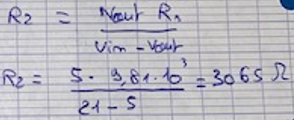 R2 = Vout R1
Vin - Vout
R2 = 5 · 9,81 · 10³ = 3065 Ω
21 - 5